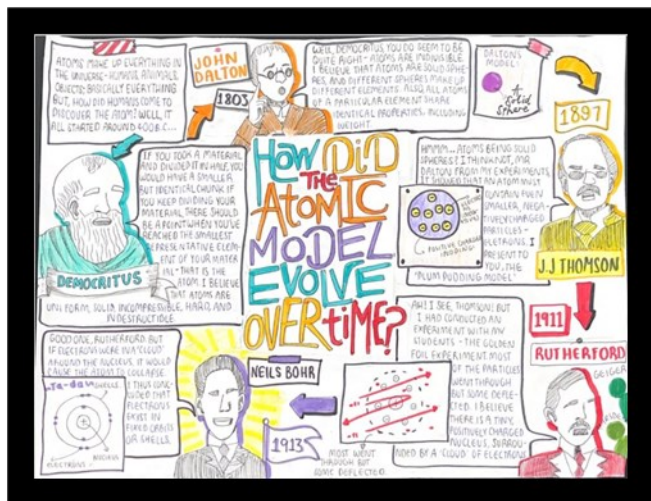 ATOMS MAKE UP EVERYTHING IN
THE UNIVERSE - HUMANS, ANIMALS,
OBJECTS; BASICALLY EVERYTHING
BUT, HOW DID HUMANS COME TO
DISCOVER THE ATOM? WELL, IT
ALL STARTED AROUND 400B.C...
JOHN
DALTON
1803
WELL, DEMOCRITUS, YOU DO SEEM TO BE
QUITE RIGHT - ATOMS ARE INDIVISIBLE.
I BELIEVE THAT ATOMS ARE SOLID SPHE-
RES, AND DIFFERENT SPHERES MAKE UP
DIFFERENT ELEMENTS. ALSO, ALL ATOMS
OF A PARTICULAR ELEMENT SHARE
IDENTICAL PROPERTIES, INCLUDING
WEIGHT.
DALTON'S
MODEL:
A
Solid
Sphere
1897
IF YOU TOOK A MATERIAL
AND DIVIDED IT IN HALF, YOU
WOULD HAVE A SMALLER
BUT IDENTICAL CHUNK. IF
YOU KEEP DIVIDING YOUR
MATERIAL, THERE SHOULD
BE A POINT WHEN YOU'VE
REACHED THE SMALLEST
REPRESENTATIVE ELEM-
ENT OF YOUR MATER
IAL - THAT IS THE
ATOM. I BELIEVE
THAT ATOMS ARE
UNIFORM, SOLID, INCOMPRESSIBLE, HARD, AND
INDESTRUCTIBLE.
DEMOCRITUS
HOW DiD
THE
ATOMIC
MODEL
EVOLVE
OVER tiME?
HMMM... ATOMS BEING SOLID
SPHERES? I THINK NOT, MR.
DALTON. FROM MY EXPERIMENTS,
IT SHOWED THAT AN ATOM MUST
CONTAIN EVEN
SMALLER, NEGA-
TIVELY CHARGED
PARTICLES -
ELECTRONS. I
PRESENT TO
YOU, THE
"PLUM PUDDING MODEL"
POSITIVE CHARGE
(PUDDING)
J.J THOMSON
1911
RUTHERFORD
GEIGER
AH! I SEE, THOMSON! BUT
I HAD CONDUCTED AN
EXPERIMENT WITH MY
STUDENTS - THE GOLDEN
FOIL EXPERIMENT. MOST
OF THE PARTICLES
WENT THROUGH
BUT SOME DEFLE-
CTED. I BELIEVE
THERE IS A TINY,
POSITIVELY CHARGED
NUCLEUS, SURROU-
NDED BY A 'CLOUD' OF ELECTRONS
MOST WENT
THROUGH BUT
SOME DEFLECTED.
NEILS BOHR
1913
GOOD ONE, RUTHERFORD. BUT
IF ELECTRONS WERE IN A 'CLOUD'
AROUND THE NUCLEUS, IT WOULD
CAUSE THE ATOM TO COLLAPSE.
I THUS CONC-
LUDED THAT
ELECTRONS
EXIST IN
FIXED ORBITS
OR SHELLS.
Ta-daa
SHELLS
NUCLEUS
ELECTRONS